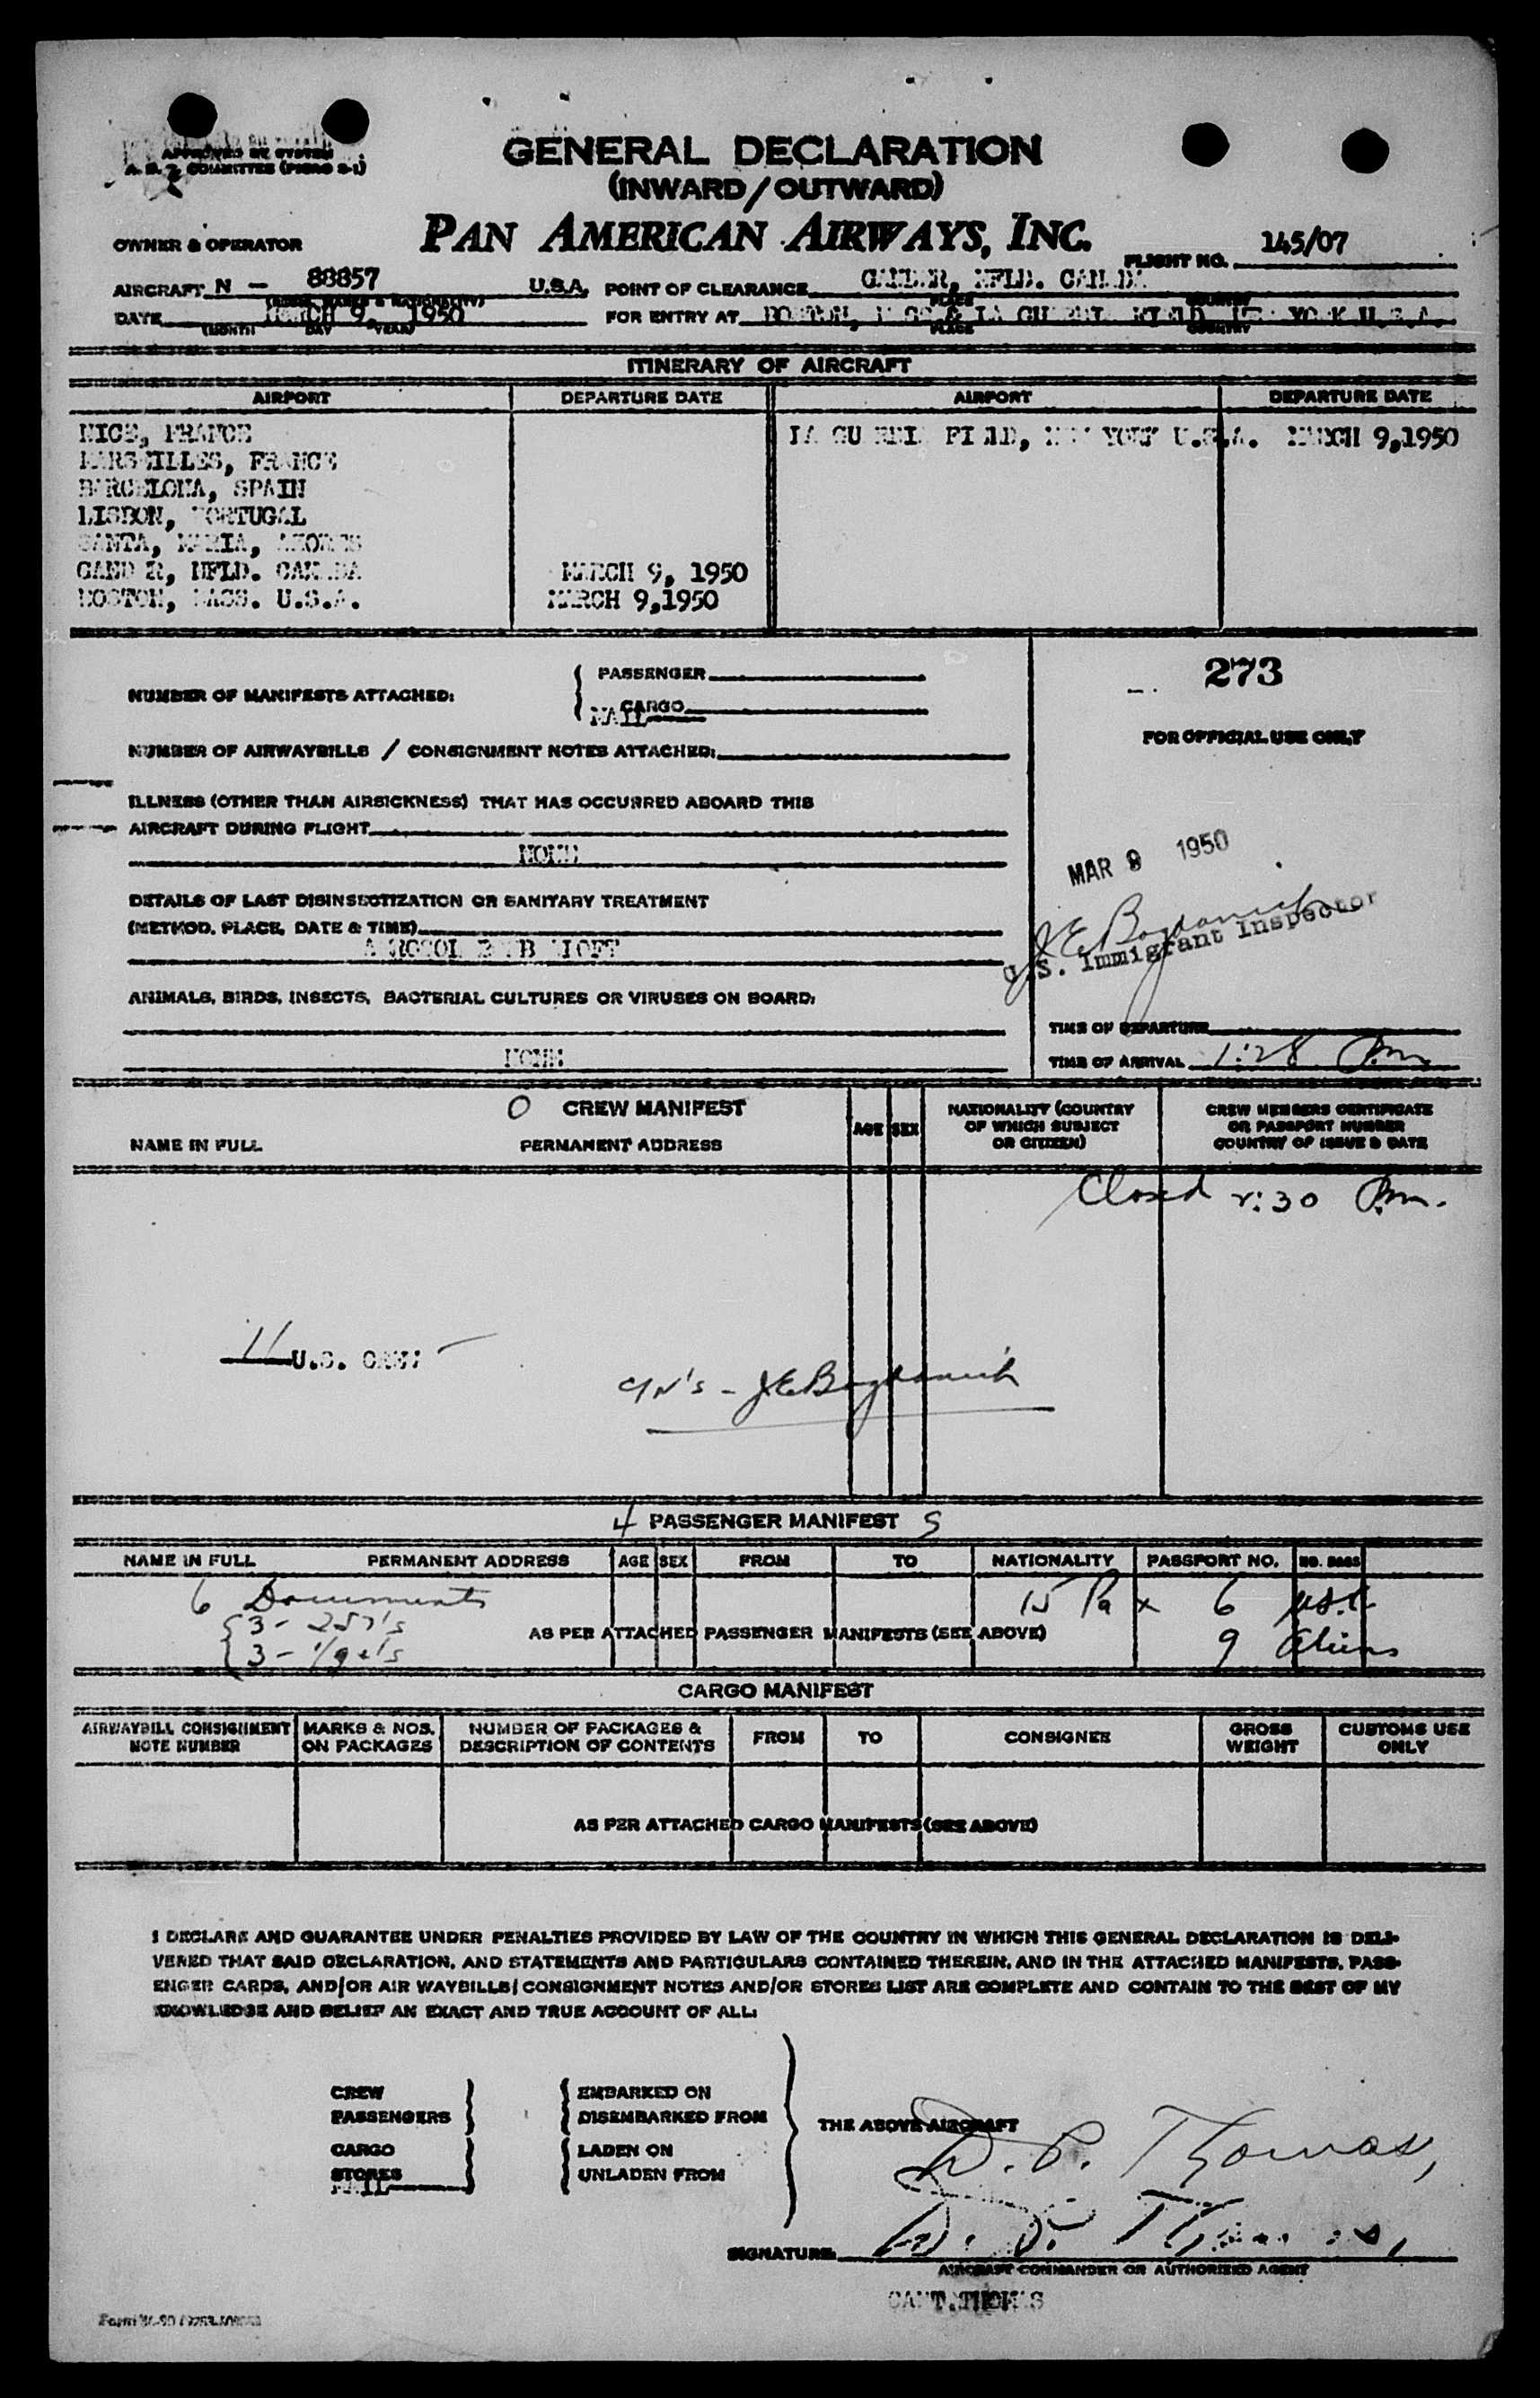 APPROVED BY SYSTEM
COMMITTEE
GENERAL DECLARATION
(INWARD/OUTWARD)
OWNER & OPERATOR
PAN AMERICAN AIRWAYS, INC.
FLIGHT NO. 145/07
AIRCRAFT N - 88857 U.S.A. POINT OF CLEARANCE GANDER, NFLD. CANADA
PLACE COUNTRY
DATE MARCH 9, 1950 FOR ENTRY AT BOSTON, MASS & LA GUARDIA FIELD, NEW YORK U.S.A.
(MONTH DAY YEAR) PLACE COUNTRY
ITINERARY OF AIRCRAFT
AIRPORT DEPARTURE DATE AIRPORT DEPARTURE DATE
NICE, FRANCE LA GUARDIA FIELD, NEW YORK U.S.A. MARCH 9,1950
MARSEILLES, FRANCE
BARCELONA, SPAIN
LISBON, PORTUGAL
SANTA, MARIA, AZORES
GANDER, NFLD. CANADA MARCH 9, 1950
BOSTON, MASS. U.S.A. MARCH 9,1950
273
NUMBER OF MANIFESTS ATTACHED: PASSENGER
CARGO
MAIL
NUMBER OF AIRWAYBILLS / CONSIGNMENT NOTES ATTACHED:
FOR OFFICIAL USE ONLY
ILLNESS (OTHER THAN AIRSICKNESS) THAT HAS OCCURRED ABOARD THIS
AIRCRAFT DURING FLIGHT
NONE
MAR 9 1950
DETAILS OF LAST DISINSECTIZATION OR SANITARY TREATMENT
(METHOD, PLACE, DATE & TIME)
AEROSOL BOMB
J.E. Bogdanich
U.S. Immigrant Inspector
ANIMALS, BIRDS, INSECTS, BACTERIAL CULTURES OR VIRUSES ON BOARD:
NONE
TIME OF DEPARTURE
TIME OF ARRIVAL 1:28 P.m.
O CREW MANIFEST
NAME IN FULL PERMANENT ADDRESS AGE SEX NATIONALITY (COUNTRY OF WHICH SUBJECT OR CITIZEN) CREW MEMBERS CERTIFICATE OR PASSPORT NUMBER COUNTRY OF ISSUE & DATE
Closed 2:30 P.m.
11 U.S. CREW
J.E. Bogdanich
4 PASSENGER MANIFEST 5
NAME IN FULL PERMANENT ADDRESS AGE SEX FROM TO NATIONALITY PASSPORT NO. NO. BAGS
6 Documents 15 Pax 6 USC
3 - 257's
AS PER ATTACHED PASSENGER MANIFESTS (SEE ABOVE) 9 Aliens
CARGO MANIFEST
AIRWAYBILL CONSIGNMENT NOTE NUMBER MARKS & NOS. ON PACKAGES NUMBER OF PACKAGES & DESCRIPTION OF CONTENTS FROM TO CONSIGNEE GROSS WEIGHT CUSTOMS USE ONLY
AS PER ATTACHED CARGO MANIFESTS (SEE ABOVE)
I DECLARE AND GUARANTEE UNDER PENALTIES PROVIDED BY LAW OF THE COUNTRY IN WHICH THIS GENERAL DECLARATION IS DELI-
VERED THAT SAID DECLARATION, AND STATEMENTS AND PARTICULARS CONTAINED THEREIN, AND IN THE ATTACHED MANIFESTS, PASS-
ENGER CARDS, AND/OR AIR WAYBILLS/CONSIGNMENT NOTES AND/OR STORES LIST ARE COMPLETE AND CONTAIN TO THE BEST OF MY
KNOWLEDGE AND BELIEF AN EXACT AND TRUE ACCOUNT OF ALL:
CREW EMBARKED ON
PASSENGERS DISEMBARKED FROM
THE ABOVE AIRCRAFT
CARGO LADEN ON
STORES UNLADEN FROM
MAIL
D. P. Thomas,
SIGNATURE D. P. Thomas,
AIRCRAFT COMMANDER OR AUTHORIZED AGENT
CAPT. THOMAS